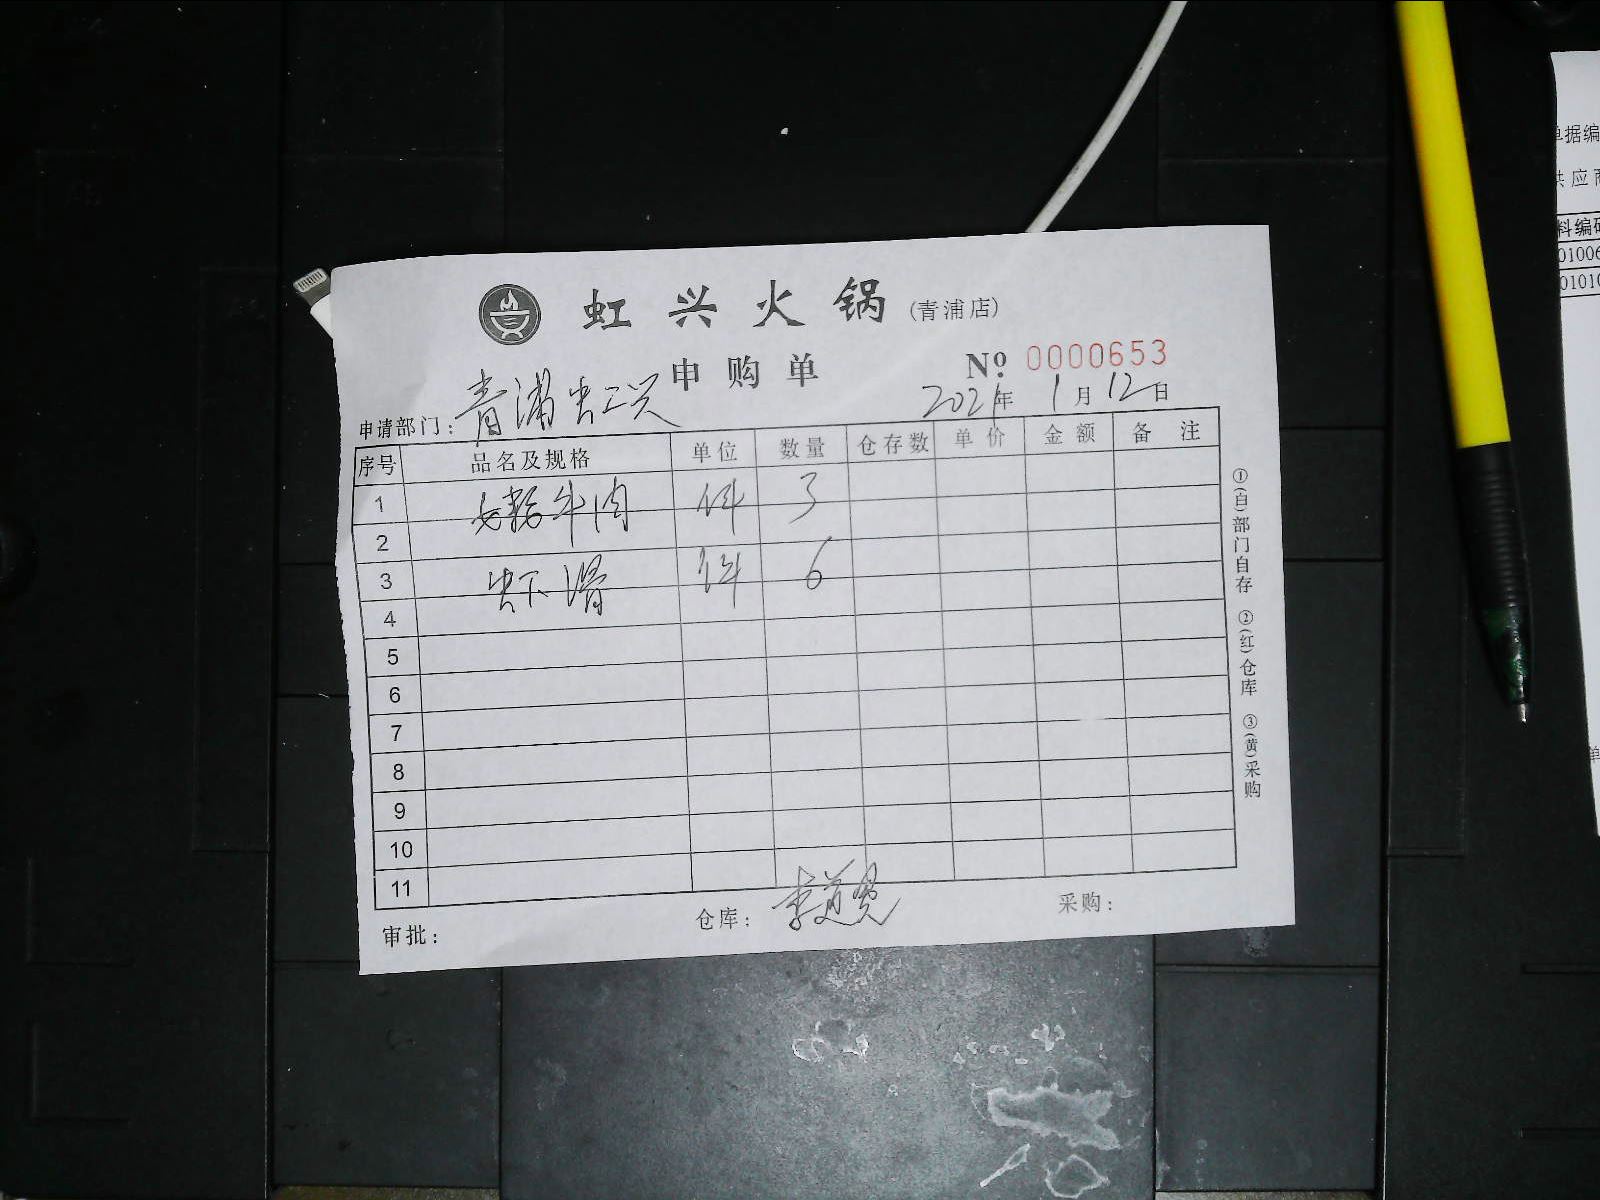 虹兴火锅(青浦店)
申购单 Nº 0000653
申请部门:青浦虹兴 2021年1月12日
序号 品名及规格 单位 数量 仓存数 单价 金额 备注
1 牛肉 件 3
2
3 虾滑 件 6
4
5
6
7
8
9
10
11
审批: 仓库:李 采购:
①(白)部门自存 ②(红)仓库 ③(黄)采购
单据编
供应商
料编码
01006
01010
单